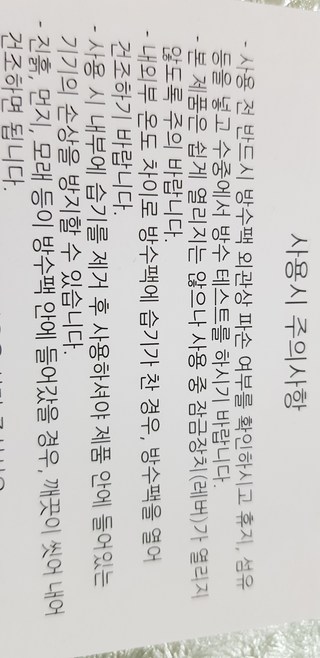 사용시 주의사항
- 사용 전 반드시 방수팩 외관상 파손 여부를 확인하시고 휴지, 섬유
등을 넣고 수중에서 방수 테스트를 하시기 바랍니다.
- 본 제품은 쉽게 열리지는 않으나 사용 중 잠금장치(레버)가 열리지
않도록 주의 바랍니다.
- 내외부 온도 차이로 방수팩에 습기가 찬 경우, 방수팩을 열어
건조하기 바랍니다.
- 사용 시 내부에 습기를 제거 후 사용하셔야 제품 안에 들어있는
기기의 손상을 방지할 수 있습니다.
- 진흙, 먼지, 모래 등이 방수팩 안에 들어갔을 경우, 깨끗이 씻어 내어
건조하면 됩니다.